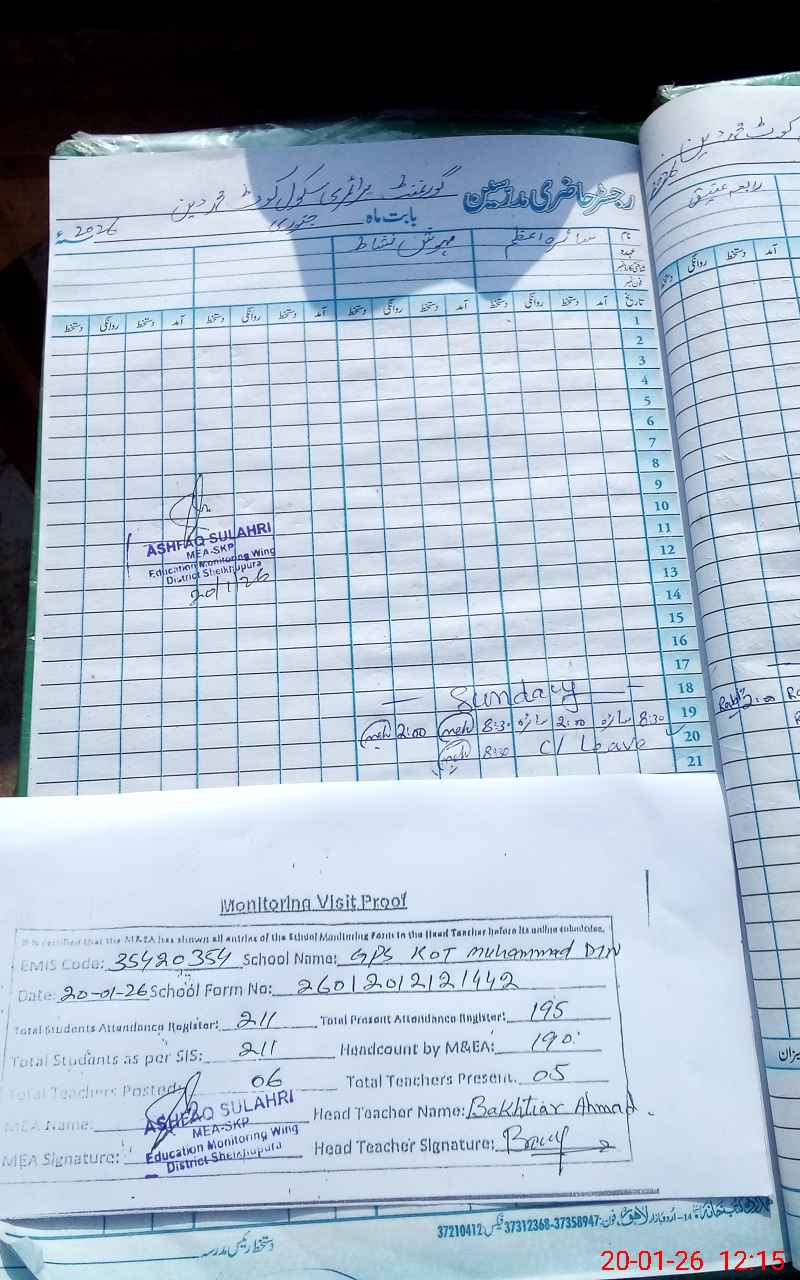 رجسٹر حاضری مدرسین گورنمنٹ پرائمری سکول کوٹ محمد دین
بابت ماہ جنوری 2026ء
نام سائرہ اعظم مہوش نشاط
عہدہ
شناختی کارڈ نمبر
فون نمبر
تاریخ آمد دستخط روانگی دستخط آمد دستخط روانگی دستخط آمد دستخط روانگی دستخط آمد دستخط روانگی دستخط
1
2
3
4
5
6
7
8
9
10
11
12
13
14
15
16
17
18 — Sunday —
19 8:30 سائرہ 2:00 سائرہ 8:30 meh 2:00 meh
20 C/ Leave 8:30 meh
21
ASHFAQ SULAHRI
MEA-SKP
Education Monitoring Wing
District Sheikhupura
20/1/26
رابعہ عتیق
آمد دستخط روانگی دستخط
2:00
Monitoring Visit Proof
It is certified that the M&EA has shown all entries of the School Monitoring Form to the Head Teacher before its online submission.
EMIS Code: 35420354 School Name: GPS KOT Muhammad DIN
Date: 20-01-26 School Form No: 26012012121442
Total Students Attendance Register: 211 Total Present Attendance Register: 195
Total Students as per SIS: 211 Headcount by M&EA: 190
Total Teachers Posted: 06 Total Teachers Present. 05
MEA Name: Head Teacher Name: Bakhtiar Ahmad.
ASHFAQ SULAHRI
MEA-SKP
Education Monitoring Wing
District Sheikhupura
MEA Signature: Head Teacher Signature:
اردو بازار لاہور فون: 37358947-37312368 فیکس: 37210412
دستخط رئیس مدرسہ
میزان
20-01-26 12:15